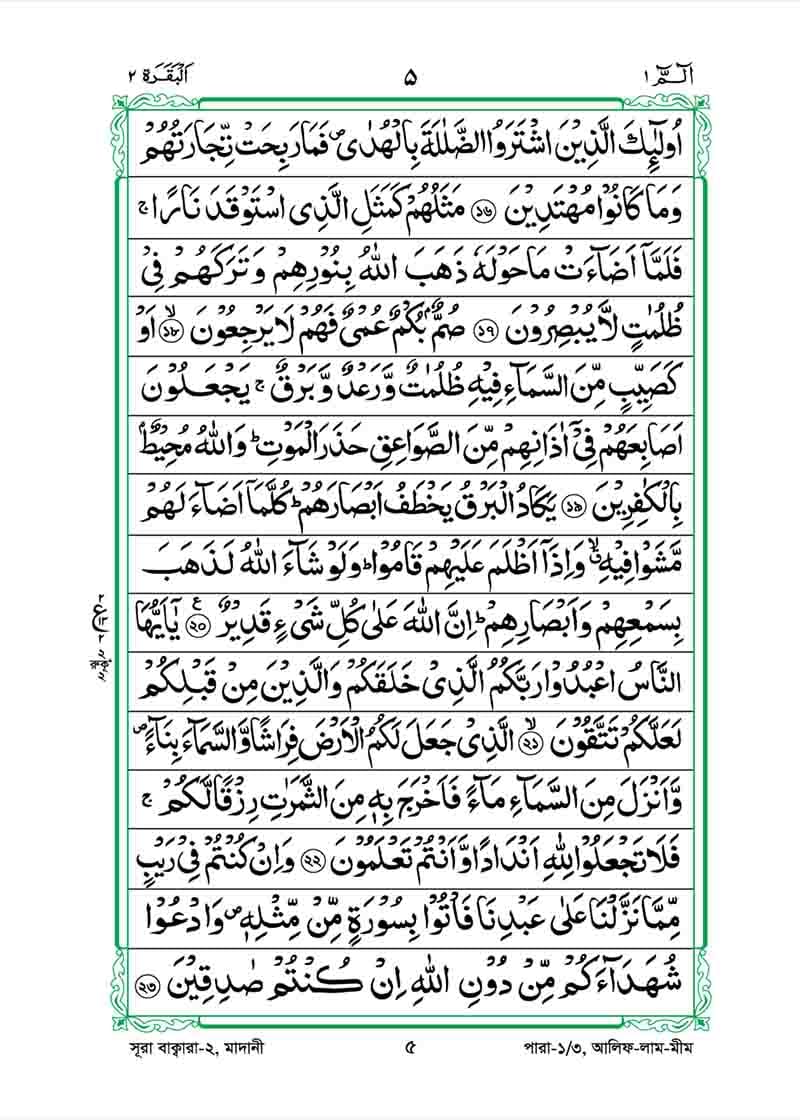 الٓـمّٓ ١ ۵ اَلْبَقَرَة ٢
اُولٰٓئِكَ الَّذِيْنَ اشْتَرَوُا الضَّلٰلَةَ بِالْهُدٰى ۪ فَمَا رَبِحَتْ تِّجَارَتُهُمْ
وَمَا كَانُوْا مُهْتَدِيْنَ ১৬ مَثَلُهُمْ كَمَثَلِ الَّذِى اسْتَوْقَدَ نَارًا ۚ
فَلَمَّآ اَضَآءَتْ مَا حَوْلَهٗ ذَهَبَ اللّٰهُ بِنُوْرِهِمْ وَتَرَكَهُمْ فِىْ
ظُلُمٰتٍ لَّا يُبْصِرُوْنَ ১৭ صُمٌّۢ بُكْمٌ عُمْىٌ فَهُمْ لَا يَرْجِعُوْنَ ۙ ১৮ اَوْ
كَصَيِّبٍ مِّنَ السَّمَآءِ فِيْهِ ظُلُمٰتٌ وَّرَعْدٌ وَّبَرْقٌ ۚ يَجْعَلُوْنَ
اَصَابِعَهُمْ فِىْٓ اٰذَانِهِمْ مِّنَ الصَّوَاعِقِ حَذَرَ الْمَوْتِ ؕ وَاللّٰهُ مُحِيْطٌۢ
بِالْكٰفِرِيْنَ ১৯ يَكَادُ الْبَرْقُ يَخْطَفُ اَبْصَارَهُمْ ؕ كُلَّمَآ اَضَآءَ لَهُمْ
مَّشَوْا فِيْهِ ۙۗ وَاِذَآ اَظْلَمَ عَلَيْهِمْ قَامُوْا ؕ وَلَوْ شَآءَ اللّٰهُ لَذَهَبَ
بِسَمْعِهِمْ وَاَبْصَارِهِمْ ؕ اِنَّ اللّٰهَ عَلٰى كُلِّ شَىْءٍ قَدِيْرٌ ২০ ع يٰٓاَيُّهَا
النَّاسُ اعْبُدُوْا رَبَّكُمُ الَّذِىْ خَلَقَكُمْ وَالَّذِيْنَ مِنْ قَبْلِكُمْ
لَعَلَّكُمْ تَتَّقُوْنَ ۙ ২১ الَّذِىْ جَعَلَ لَكُمُ الْاَرْضَ فِرَاشًا وَّالسَّمَآءَ بِنَآءً ۪
وَّاَنْزَلَ مِنَ السَّمَآءِ مَآءً فَاَخْرَجَ بِهٖ مِنَ الثَّمَرٰتِ رِزْقًا لَّكُمْ ۚ
فَلَا تَجْعَلُوْا لِلّٰهِ اَنْدَادًا وَّاَنْتُمْ تَعْلَمُوْنَ ২২ وَاِنْ كُنْتُمْ فِىْ رَيْبٍ
مِّمَّا نَزَّلْنَا عَلٰى عَبْدِنَا فَاْتُوْا بِسُوْرَةٍ مِّنْ مِّثْلِهٖ ۪ وَادْعُوْا
شُهَدَآءَكُمْ مِّنْ دُوْنِ اللّٰهِ اِنْ كُنْتُمْ صٰدِقِيْنَ ২৩
সূরা বাক্বারা-২, মাদানী ৫ পারা-১/৩, আলিফ-লাম-মীম